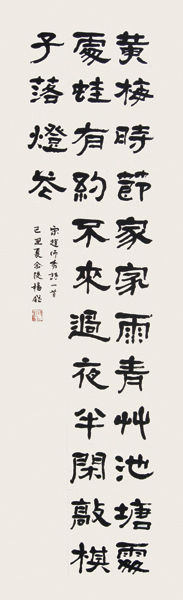 黄梅時節家家雨青艸池塘處
處蛙有約不來過夜半閑敲棋
子落燈花
宋趙師秀詩一首
己丑夏金陵楊